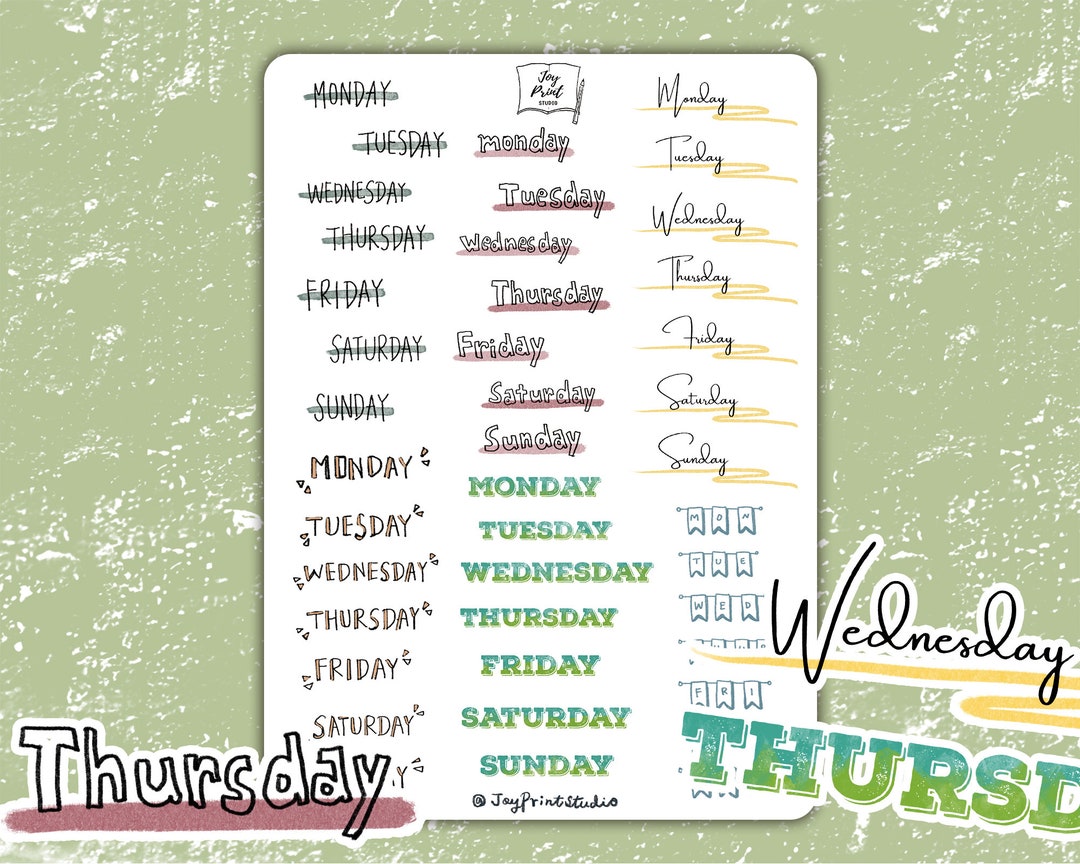 MONDAY
TUESDAY
WEDNESDAY
THURSDAY
FRIDAY
SATURDAY
SUNDAY
Joy
Print
STUDIO
monday
Tuesday
Wednesday
Thursday
Friday
Saturday
Sunday
Monday
Tuesday
Wednesday
Thursday
Friday
Saturday
Sunday
MONDAY
TUESDAY
WEDNESDAY
THURSDAY
FRIDAY
SATURDAY
MONDAY
TUESDAY
WEDNESDAY
THURSDAY
FRIDAY
SATURDAY
SUNDAY
@JoyPrintStudio
MON
TUE
WED
FRI
Wednesday
Thursday
THURSD